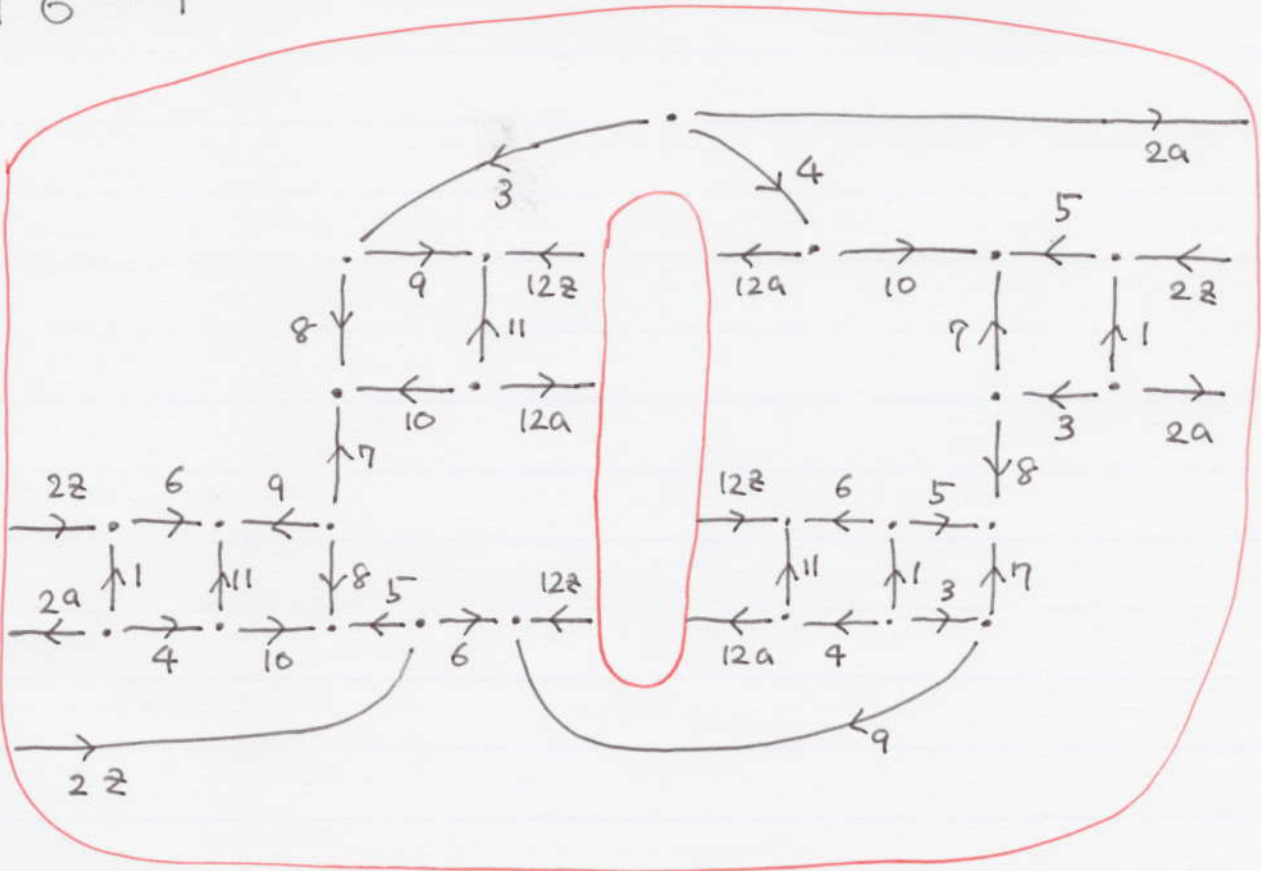 6
2a
3
4
5
9
12z
12a
10
2z
8
11
7
1
10
12a
3
2a
7
8
2z
6
9
12z
6
5
1
11
8
5
12z
11
1
3
7
2a
4
10
6
12a
4
9
2z